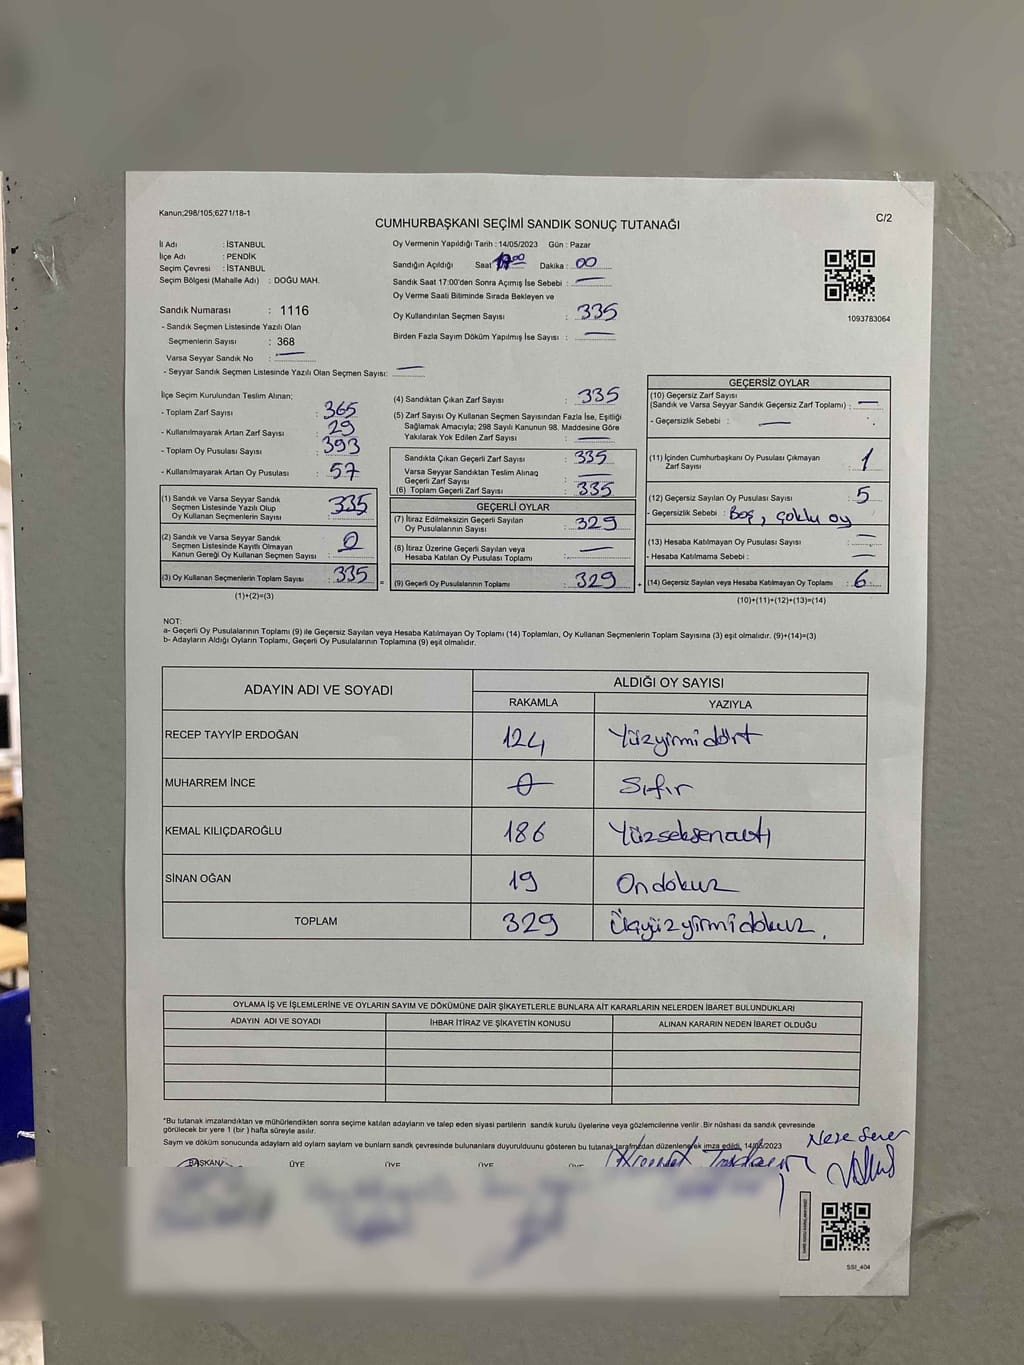 Kanun;298/105;6271/18-1
CUMHURBAŞKANI SEÇİMİ SANDIK SONUÇ TUTANAĞI
C/2
İl Adı : İSTANBUL
İlçe Adı : PENDİK
Seçim Çevresi : İSTANBUL
Seçim Bölgesi (Mahalle Adı) : DOĞU MAH.
Sandık Numarası : 1116
- Sandık Seçmen Listesinde Yazılı Olan
Seçmenlerin Sayısı : 368
Varsa Seyyar Sandık No : —
- Seyyar Sandık Seçmen Listesinde Yazılı Olan Seçmen Sayısı: —
Oy Vermenin Yapıldığı Tarih : 14/05/2023 Gün : Pazar
Sandığın Açıldığı Saat Dakika : 00
Sandık Saat 17:00'den Sonra Açımış İse Sebebi : —
Oy Verme Saati Bitiminde Sırada Bekleyen ve
Oy Kullandırılan Seçmen Sayısı : 335
Birden Fazla Sayım Döküm Yapılmış İse Sayısı : —
1093783064
İlçe Seçim Kurulundan Teslim Alınan;
- Toplam Zarf Sayısı : 365
- Kullanılmayarak Artan Zarf Sayısı : 29
- Toplam Oy Pusulası Sayısı : 393
- Kullanılmayarak Artan Oy Pusulası : 57
(1) Sandık ve Varsa Seyyar Sandık
Seçmen Listesinde Yazılı Olup
Oy Kullanan Seçmenlerin Sayısı : 335
(2) Sandık ve Varsa Seyyar Sandık
Seçmen Listesinde Kayıtlı Olmayan
Kanun Gereği Oy Kullanan Seçmen Sayısı : 0
(3) Oy Kullanan Seçmenlerin Toplam Sayısı : 335 =
(1)+(2)=(3)
(4) Sandıktan Çıkan Zarf Sayısı : 335
(5) Zarf Sayısı Oy Kullanan Seçmen Sayısından Fazla İse, Eşitliği
Sağlamak Amacıyla; 298 Sayılı Kanunun 98. Maddesine Göre
Yakılarak Yok Edilen Zarf Sayısı : —
Sandıkta Çıkan Geçerli Zarf Sayısı : 335
Varsa Seyyar Sandıktan Teslim Alınan
Geçerli Zarf Sayısı : —
(6) Toplam Geçerli Zarf Sayısı : 335
GEÇERLİ OYLAR
(7) İtiraz Edilmeksizin Geçerli Sayılan
Oy Pusulalarının Sayısı : 329
(8) İtiraz Üzerine Geçerli Sayılan veya
Hesaba Katılan Oy Pusulası Toplamı : —
(9) Geçerli Oy Pusulalarının Toplamı : 329 +
GEÇERSİZ OYLAR
(10) Geçersiz Zarf Sayısı
(Sandık ve Varsa Seyyar Sandık Geçersiz Zarf Toplamı) : —
- Geçersizlik Sebebi : —
(11) İçinden Cumhurbaşkanı Oy Pusulası Çıkmayan
Zarf Sayısı : 1
(12) Geçersiz Sayılan Oy Pusulası Sayısı : 5
- Geçersizlik Sebebi : Boş, çoklu oy
(13) Hesaba Katılmayan Oy Pusulası Sayısı : —
- Hesaba Katılmama Sebebi : —
(14) Geçersiz Sayılan veya Hesaba Katılmayan Oy Toplamı : 6
(10)+(11)+(12)+(13)=(14)
NOT:
a- Geçerli Oy Pusulalarının Toplamı (9) ile Geçersiz Sayılan veya Hesaba Katılmayan Oy Toplamı (14) Toplamları, Oy Kullanan Seçmenlerin Toplam Sayısına (3) eşit olmalıdır. (9)+(14)=(3)
b- Adayların Aldığı Oyların Toplamı, Geçerli Oy Pusulalarının Toplamına (9) eşit olmalıdır.
ADAYIN ADI VE SOYADI ALDIĞI OY SAYISI
RAKAMLA YAZIYLA
RECEP TAYYİP ERDOĞAN 124 Yüzyirmidört
MUHARREM İNCE 0 Sıfır
KEMAL KILIÇDAROĞLU 186 Yüzseksenaltı
SİNAN OĞAN 19 Ondokuz
TOPLAM 329 Üçyüzyirmidokuz.
OYLAMA İŞ VE İŞLEMLERİNE VE OYLARIN SAYIM VE DÖKÜMÜNE DAİR ŞİKAYETLERLE BUNLARA AİT KARARLARIN NELERDEN İBARET BULUNDUKLARI
ADAYIN ADI VE SOYADI İHBAR İTİRAZ VE ŞİKAYETİN KONUSU ALINAN KARARIN NEDEN İBARET OLDUĞU
*Bu tutanak imzalandıktan ve mühürlendikten sonra seçime katılan adayların ve talep eden siyasi partilerin sandık kurulu üyelerine veya gözlemcilerine verilir .Bir nüshası da sandık çevresinde
görülecek bir yere 1 (bir ) hafta süreyle asılır.
Sayım ve döküm sonucunda adayların ald oyların sayların ve bunların sandk çevresinde bulunanlara duyurulduunu gösteren bu tutanak tarafımızdan düzenlenerek imza edildi. 14/05/2023
BAŞKAN ÜYE ÜYE ÜYE ÜYE
SSI_404